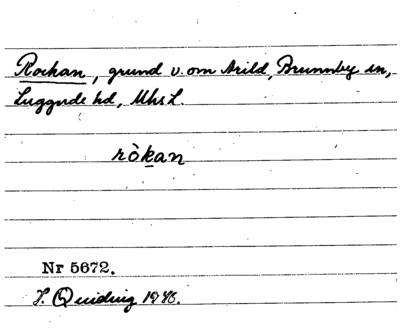 Rockan, grund v. om Arild, Brunnby sn,
Luggude hd, Mhs l.
rò̀kan
Nr 5672.
H. Quiding 1946.